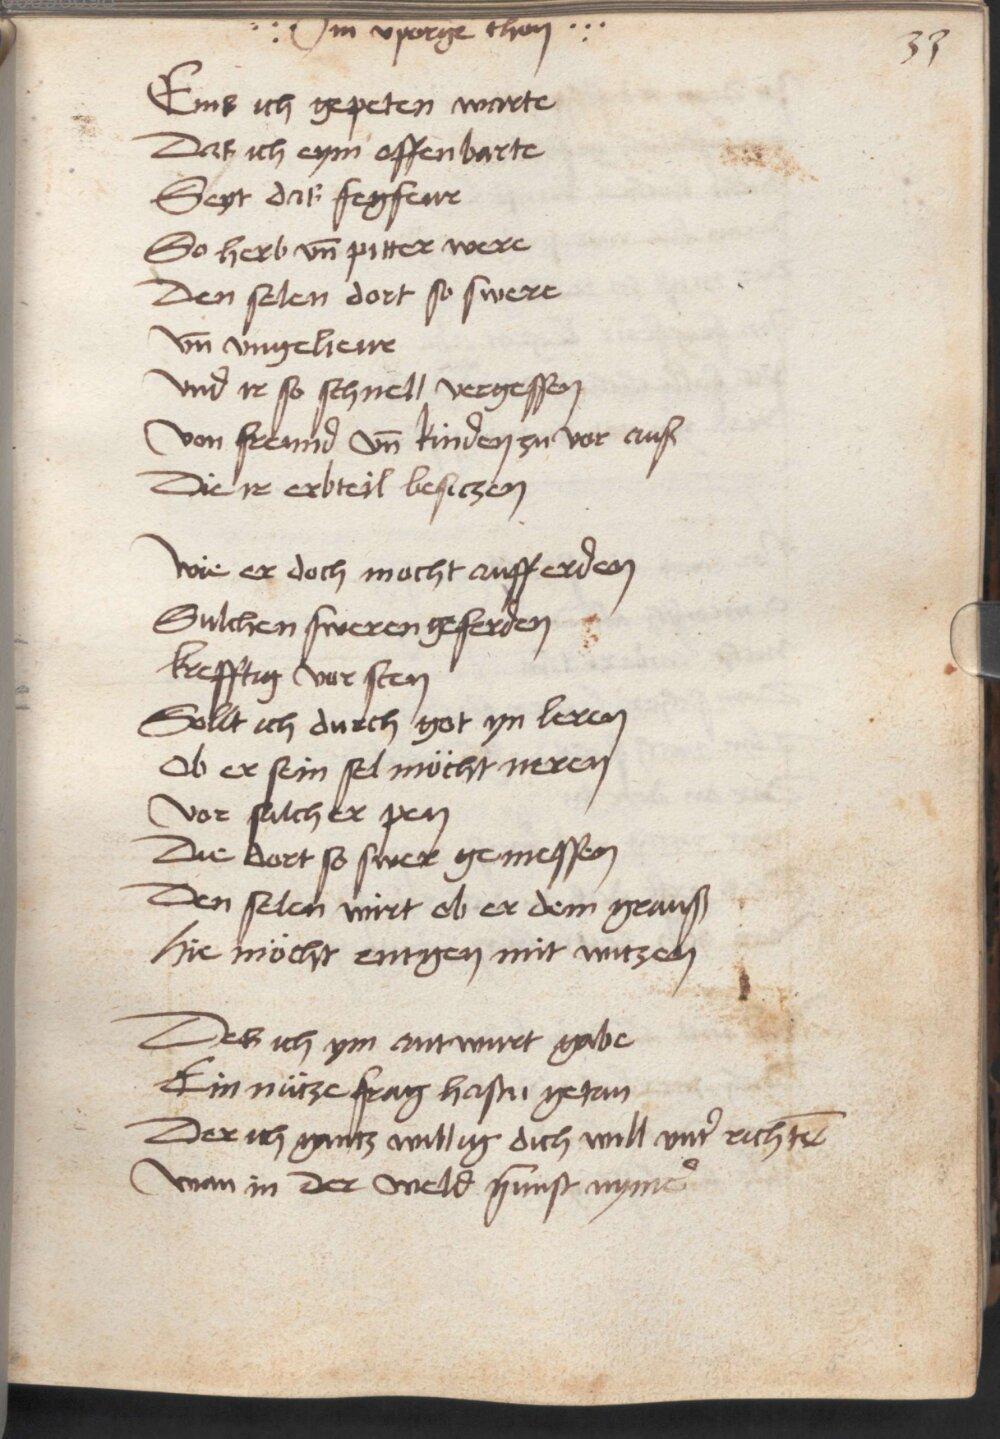 ∴ Im vporge thon ∴
33
Eins ich gepeten warte
Das ich eym offenbarte
Seyt das fegfeur
So herb vn̄ pitter were
Den selen dort so swere
Vn̄ vngeheur
Vnd ir so schnell vergessen
Von freund vn̄ kinden zu vor aus
Die ir erbteil besiczen
Wie er doch mocht auff erden
Sulchen sweren geferden
krefftig vor sten
Sollt ich durch got yn leren
Ob er sein sel möcht neren
Vor sulcher pen
Die dort so swer gemessen
Den selen wirt ob er dem grauß
hie möcht entgen mit witzen
Des ich ym antwurt gabe
Ein nütze frag hastu getan
Der ich gantz willig dich will vnt' richtē
Wan in der Weld kunst nyme